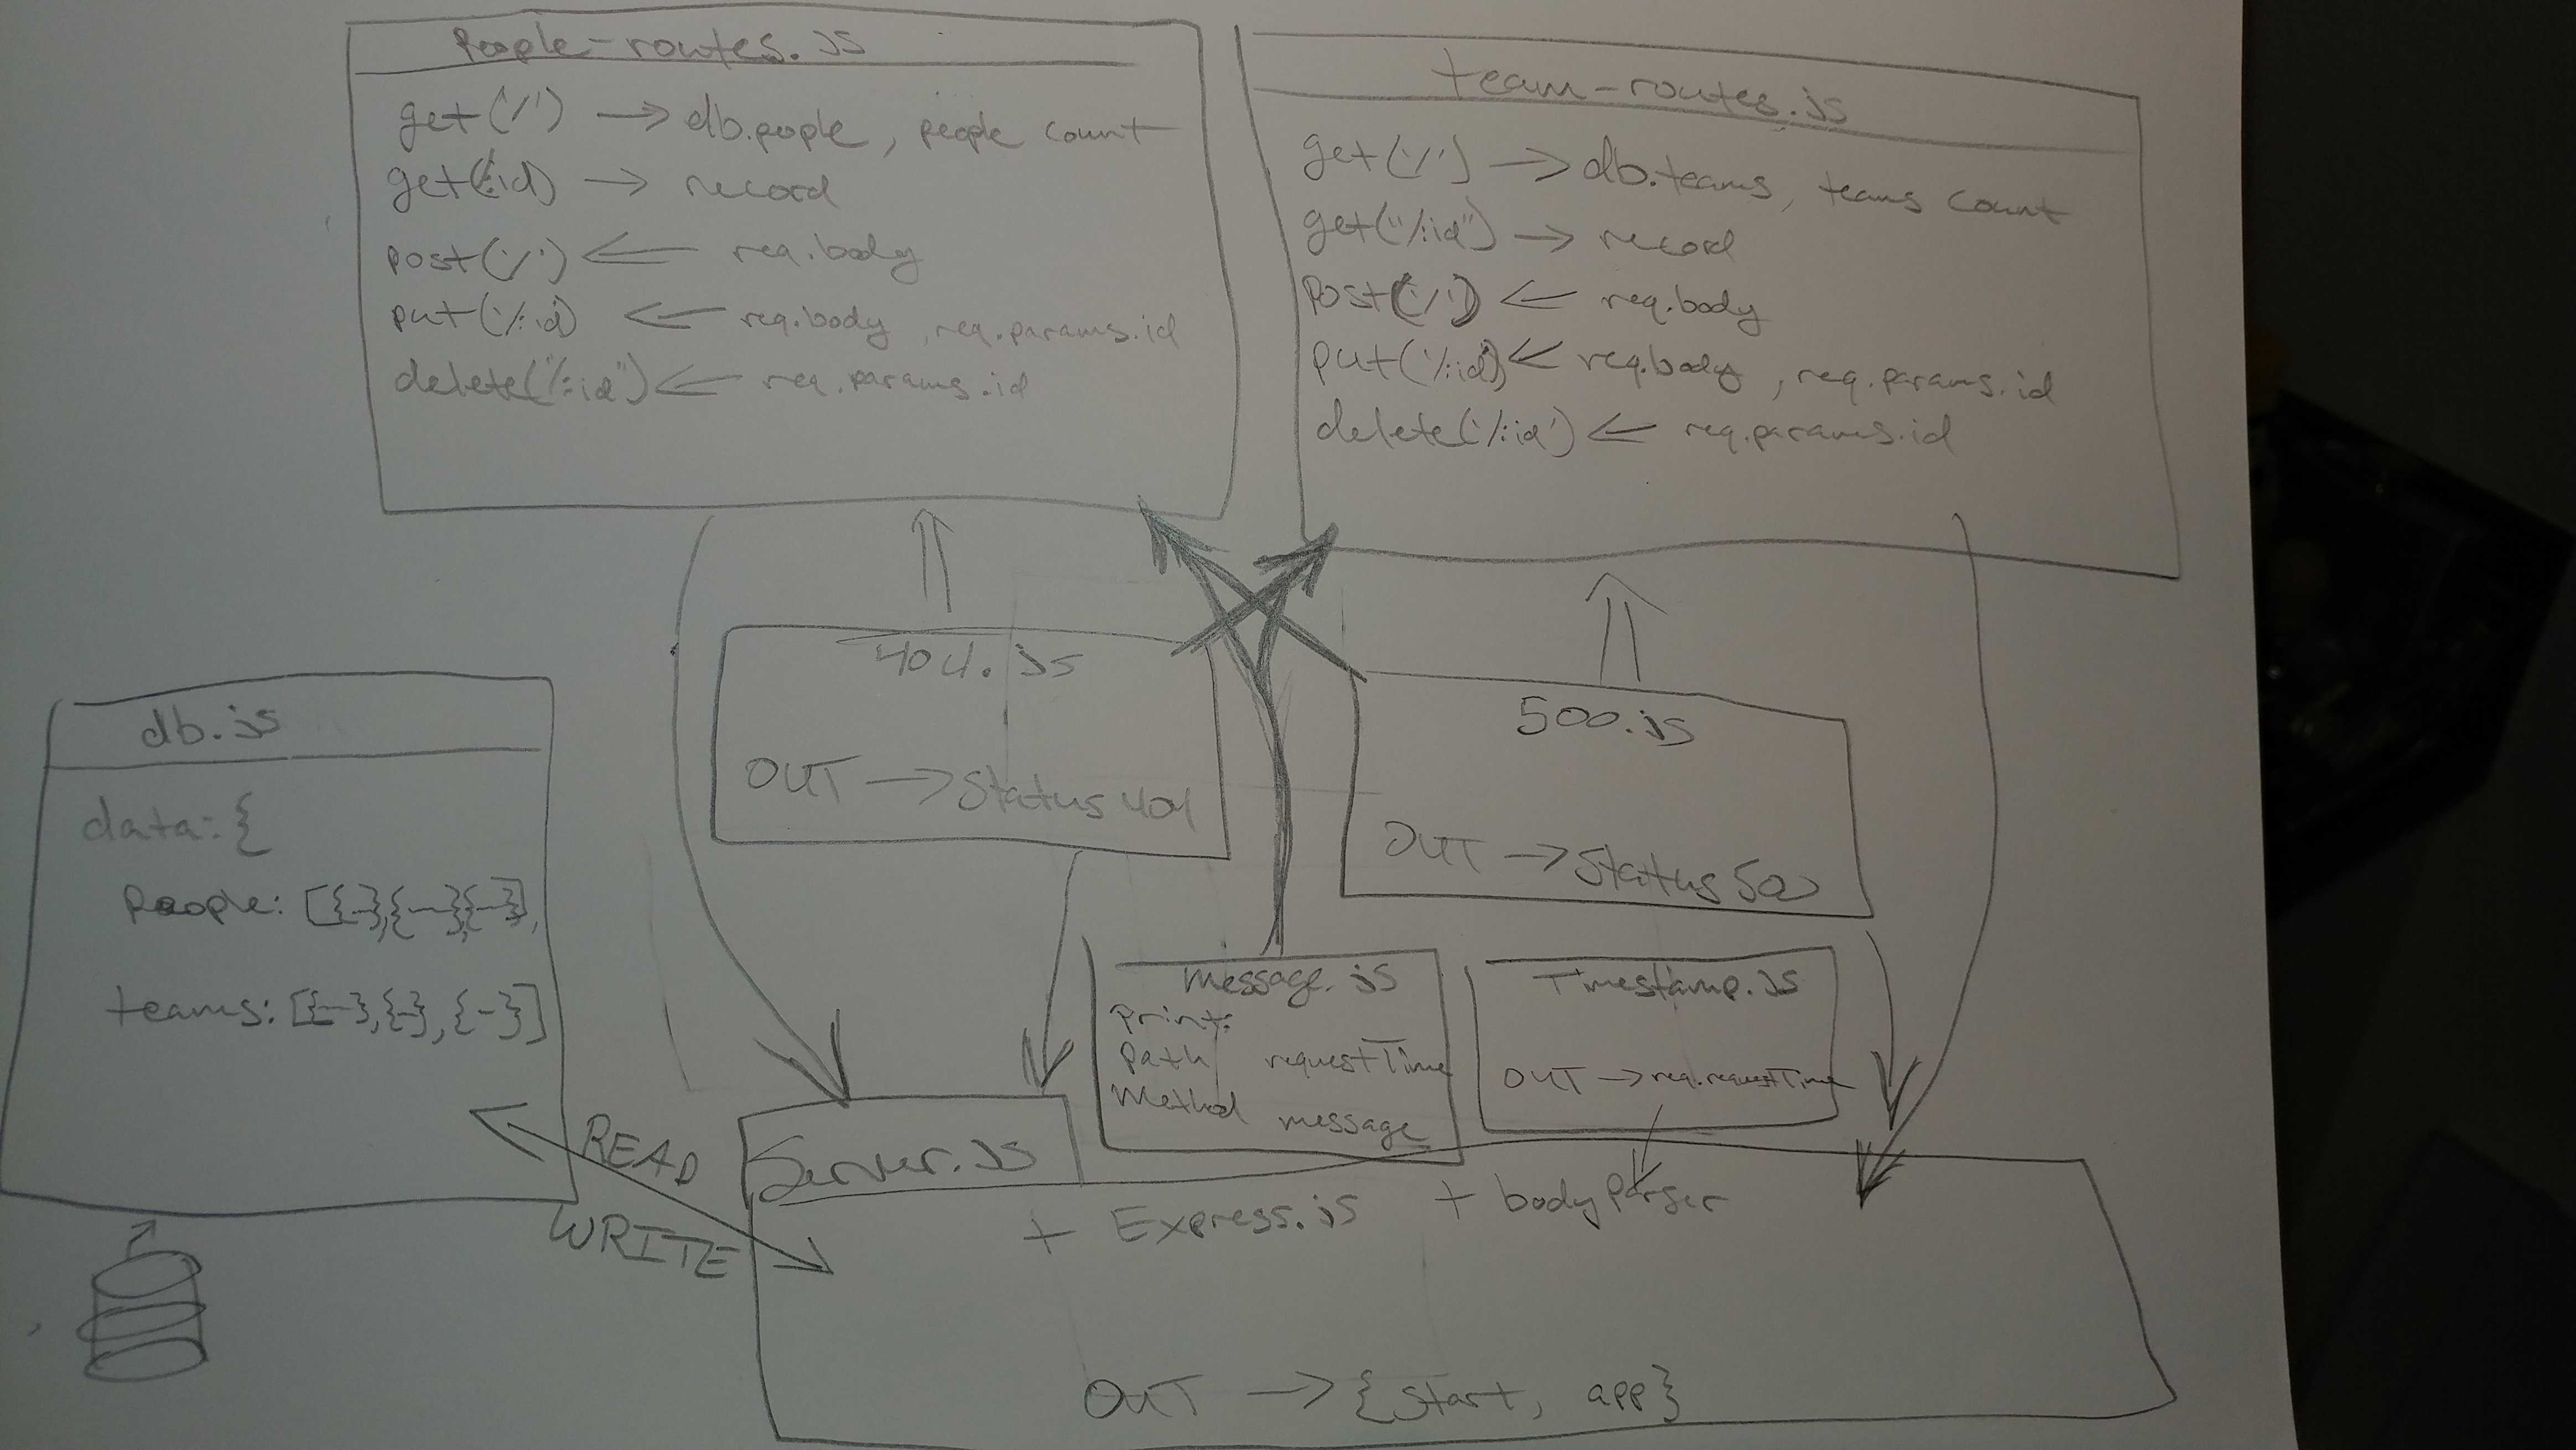 People-routes.JS
get('/') → db.people, people count
get(':id) → record
post('/') ← req.body
put('/:id) ← req.body, req.params.id
delete("/:id") ← req.params.id
team-routes.js
get('/') → db.teams, teams count
get("/:id") → record
Post('/') ← req.body
put('/:id) ← req.body, req.params.id
delete('/:id') ← req.params.id
404.js
OUT → Status 404
500.js
OUT → Status 500
db.js
data: {
People: [{-},{-},{-}],
teams: [{-},{-},{-}]
READ
WRITE
message.js
print:
Path requestTime
Method message
Timestamp.JS
OUT → req.requestTime
Server.JS
+ Express.js + bodyParser
OUT → {start, app}